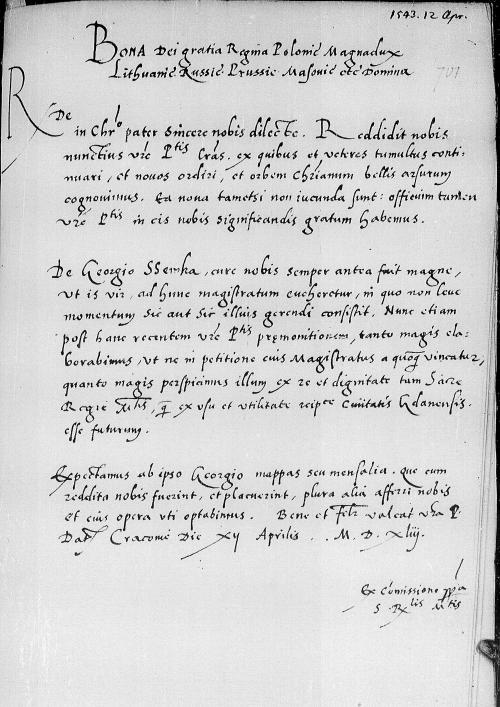 1543. 12 Apr.
BONA Dei gratia Regina Poloniæ Magnadux
Lithuaniæ Russie Prussie Masoviæ etc Domina
707
Rde
in Chro pater sincere nobis dilecte. Reddidit nobis
nunctius vre Ptis lras. ex quibus et veteres tumultus conti-
nuari, et novos ordiri, et orbem Chrianum bellis arsurum
cognovimus. Ea nova tametsi non iucunda sunt: officium tamen
vre Ptis in eis nobis significandis gratum habemus.
De Georgio SSemka, cure nobis semper antea fuit magne,
ut is vir, ad hunc magistratum eveheretur, in quo non leve
momentum sic aut sic illius gerendi consistit. Nunc etiam
post hanc recentem vre Ptis præmonitionem, tanto magis ela-
borabimus, ut ne in petitione eius Magistratus a quoq vincatur,
quanto magis perspicimus illum ex re et dignitate tam Sacre
Regie Mtis, q ex usu et utilitate reipce Civitatis Gdanensis.
esse futurum.
Expectamus ab ipso Georgio mappas seu mensalia. que cum
reddita nobis fuerint, et placuerint, plura alia afferri nobis
et eius opera uti optabimus. Bene et felr valeat vra P.
Dat Cracovie Die XII Aprilis .. M. D. XLiij.
Ex Comissione ppa
S. Rlis Mtis